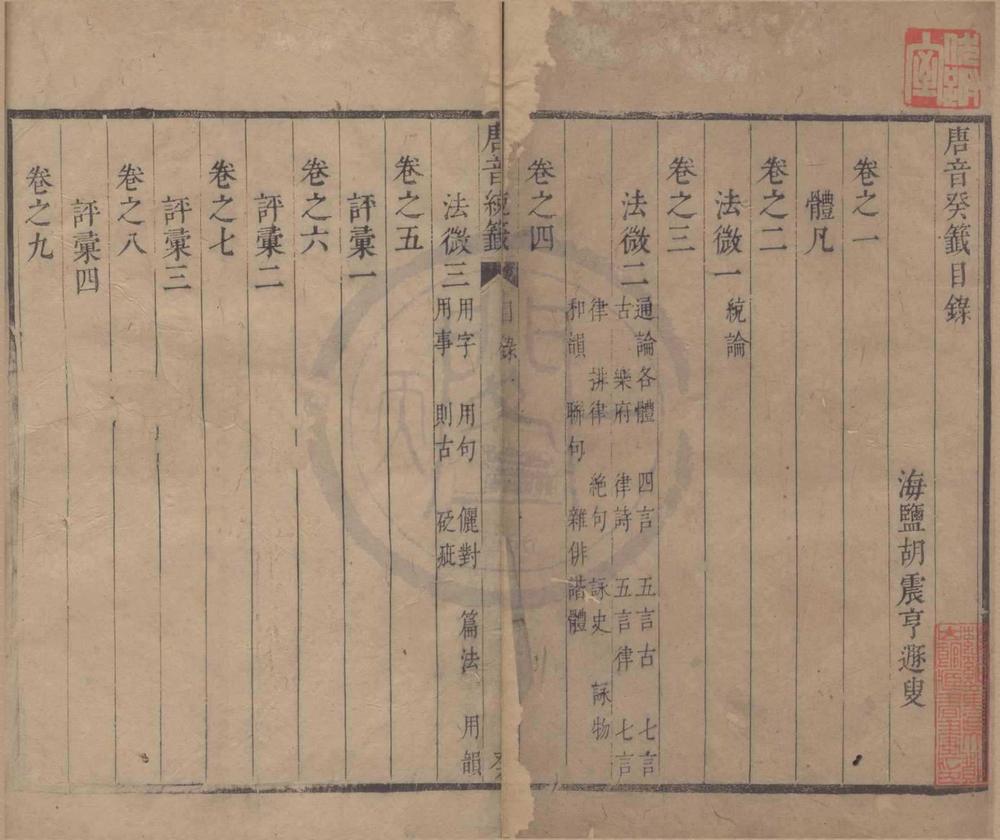 唐音癸籤目錄
海鹽胡震亨遯叟
卷之一
體凡
卷之二
法微一 統論
卷之三
法微二 通論各體 四言 五言古 七言
古 樂府 律詩 五言律 七言
律 排律 絕句 詠史 詠物
和韻 聯句 雜俳諧體
卷之四
唐音統籤 目錄
法微三 用字 用句 儷對 篇法 用韻
用事 則古 砭疵
卷之五
評彙一
卷之六
評彙二
卷之七
評彙三
卷之八
評彙四
卷之九